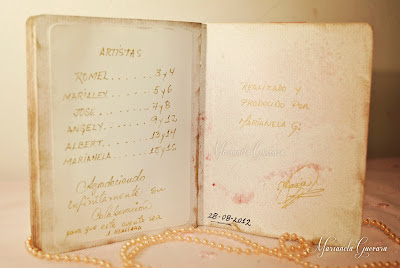 ARTISTAS
ROMEL....... 3 y 4
MARIALEX..... 5 y 6
JOSE........ 7 y 8
ANGELY...... 9 y 12
ALBERT...... 13 y 14
MARIANELA.... 15 y 16
Agradeciendo
infinitamente su
Colaboración
para que este cuento sea
REALIZADO Y
PRODUCIDO POR
MARIANELA G.
Marianela Guevara
28-08-2012
Marianela Guevara